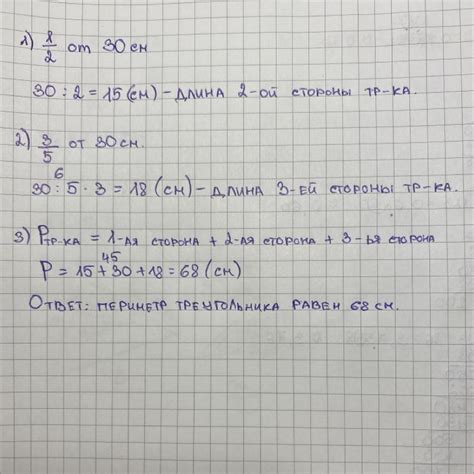 1) 1/2 от 30 см
30 : 2 = 15 (см) – длина 2-ой стороны тр-ка.
2) 3/5 от 30 см.
6
30 : 5 · 3 = 18 (см) – длина 3-ей стороны тр-ка.
3) Pтр-ка = 1-ая сторона + 2-ая сторона + 3-ья сторона
45
P = 15 + 30 + 18 = 68 (см)
Ответ: периметр треугольника равен 68 см.